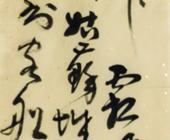 霜
姑蘇城
到客船